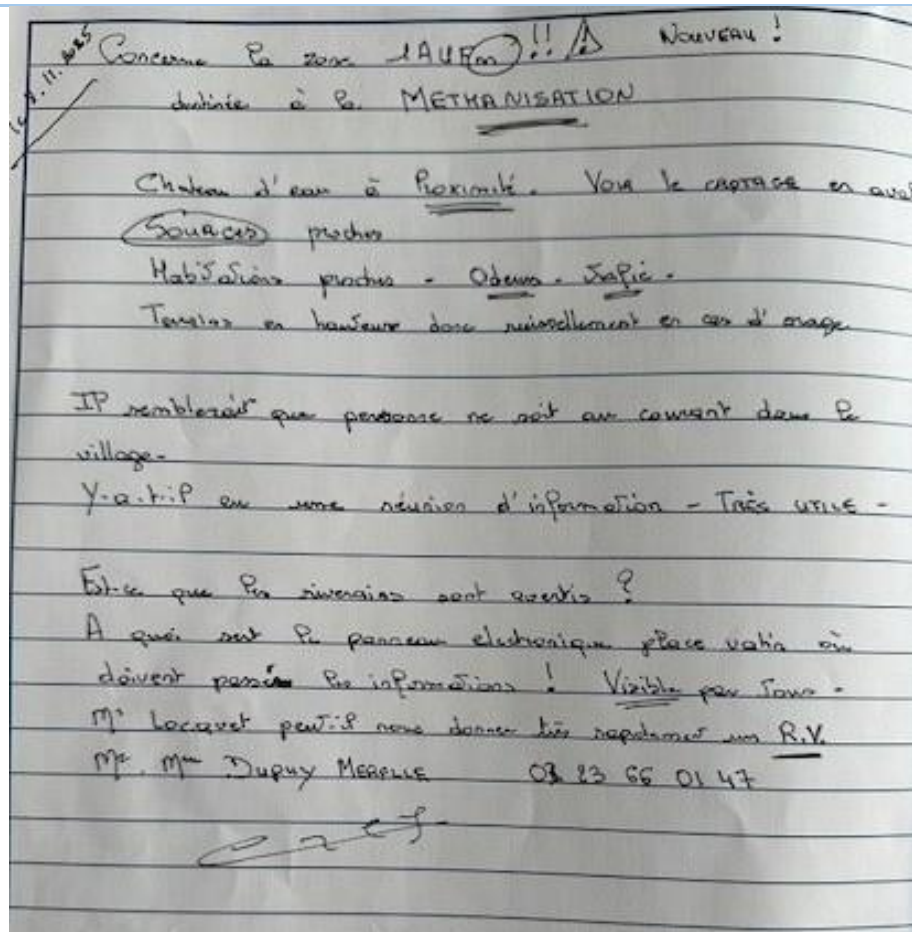 Le 7.11.2025
Concerne la zone 1AUEm !! ⚠ NOUVEAU !
destinée à la METHANISATION
Chateau d'eau à Proximité. Voir le CAPTAGE en aval
Sources proches
Habitations proches - Odeurs - Trafic -
Terrains en hauteur donc ruissellement en cas d'orage
Il semblerait que personne ne soit au courant dans le
village.
Y-a-t-il eu une réunion d'information - TRÈS UTILE -
Est-ce que les riverains sont avertis ?
A quoi sert le panneau electronique place où
doivent passer les informations ! Visible par tous -
Mr Locquet peut-il nous donner très rapidement un R.V.
Mr. Mme DUPUY MERELLE 03 23 66 01 47